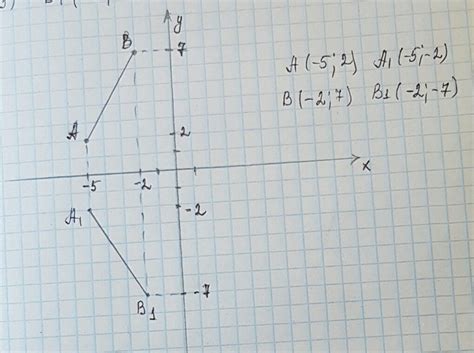 y
B
7
A(-5; 2) A₁(-5; -2)
B(-2; 7) B1(-2; -7)
A
2
x
-5
-2
A₁
-2
-7
B1